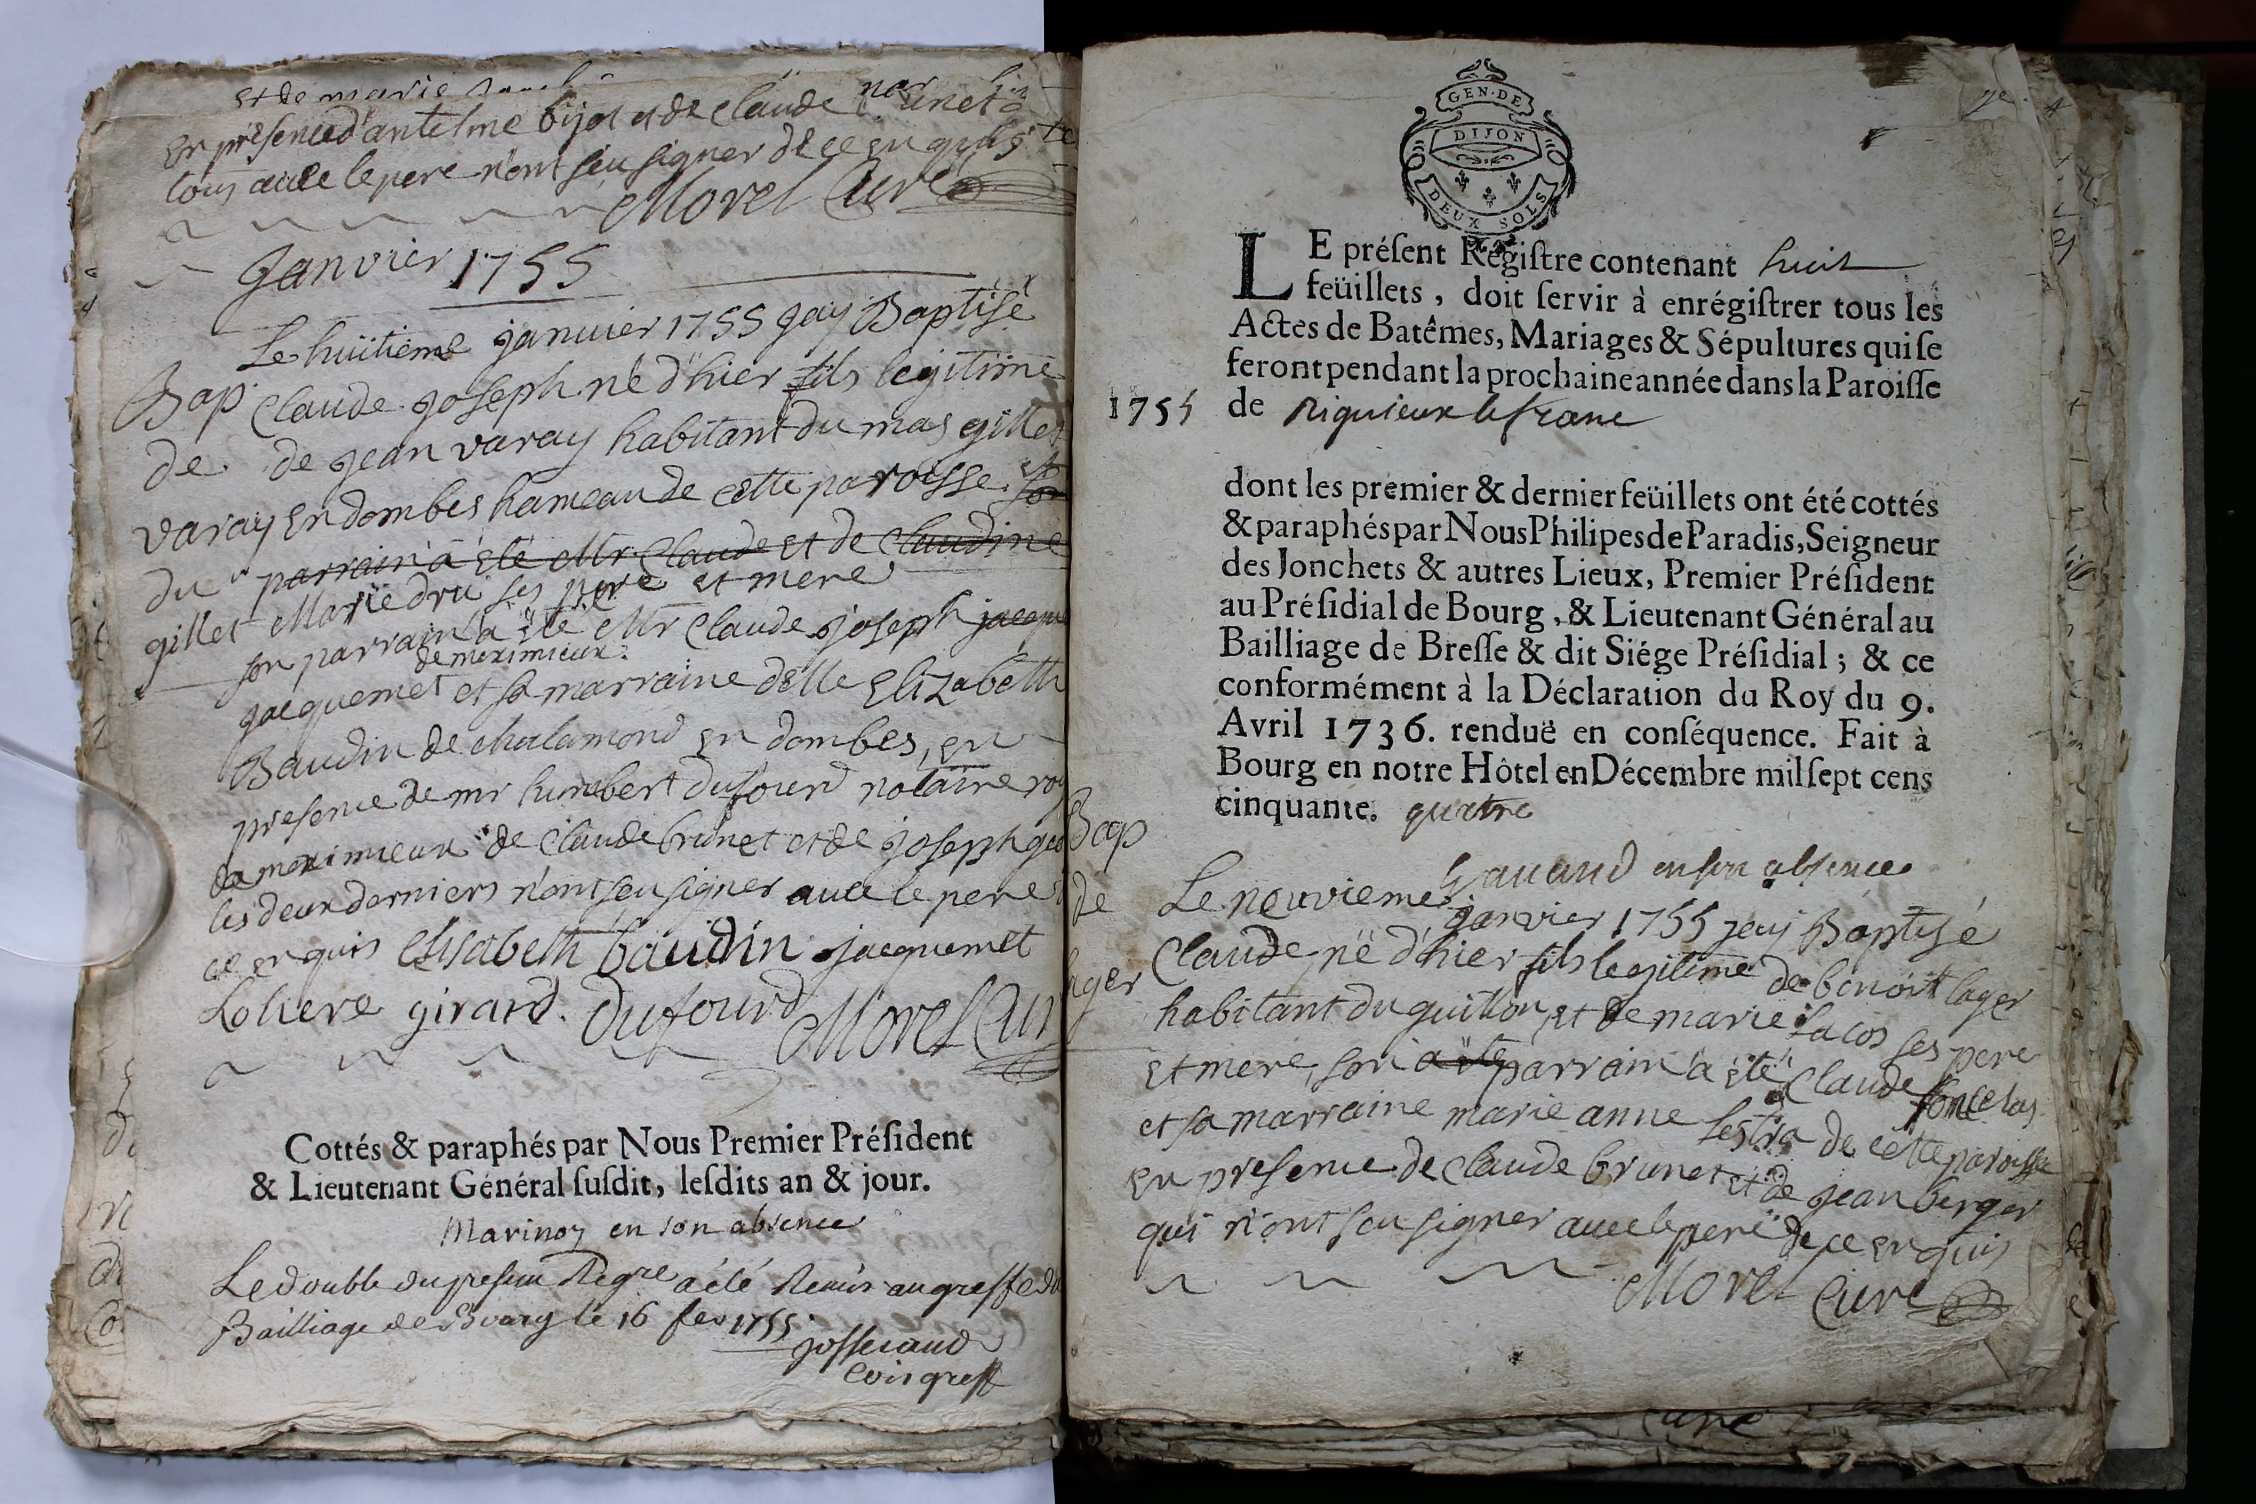 et de marie
En presence d'antelme bijot et de Claude brunet
tous avec le pere n'ont sçeu signer de ce enquis
Morel Curé
Janvier 1755
Le huitieme janvier 1755 jay Baptisé
Bap Claude joseph né d'hier fils legitime
de de jean varay habitant du mas gillet
varay en dombes hameau de cette paroisse et son
du parrain a eté Mr Claude et de Claudine
gillet Marie dru ses pere et mere
son parrain a eté Mr Claude joseph jacque
de meximieux
jacquemet et sa marraine delle Elizabeth
Baudin de chalamond en dombes, en
presence de mr humbert dufourd notaire roy
de meximieux de Claude brunet et de joseph
les deux derniers n'ont sçeu signer avec le pere
ce enquis Elisabeth baudin jacquemet
Loliere girard. Dufourd Morel Cur
Cottés & paraphés par Nous Premier Préſident
& Lieutenant Général ſuſdit, leſdits an & jour.
Marinoz en son absence
Le double du present Regre a été Remis au greffe du
Bailliage de Bourg le 16 fev 1755
josserand
Com greff
GEN·DE
DIJON
DEUX SOLS
LE préſent Régiſtre contenant huit
feüillets, doit ſervir à enrégiſtrer tous les
Actes de Batêmes, Mariages & Sépultures qui ſe
feront pendant la prochaine année dans la Paroiſſe
1755 de Riquieux le franc
dont les premier & dernier feüillets ont été cottés
& paraphés par Nous Philipes de Paradis, Seigneur
des Jonchets & autres Lieux, Premier Préſident
au Préſidial de Bourg, & Lieutenant Général au
Bailliage de Breſſe & dit Siége Préſidial; & ce
conformément à la Déclaration du Roy du 9.
Avril 1736. renduë en conſéquence. Fait à
Bourg en notre Hôtel en Décembre mil ſept cens
cinquante. quatre
en son absence
Bap
de Le neuvieme janvier 1755 jay Baptisé
lager Claude né d'hier fils legitime de benoit lager
habitant du guillon et de marie lacos ses pere
et mere, son a eté parrain a eté Claude
et sa marraine marie anne lestra de cette paroisse
en presence de Claude brunet et de jean berger
qui n'ont sçeu signer avec le pere de ce enquis
Morel Curé
curé